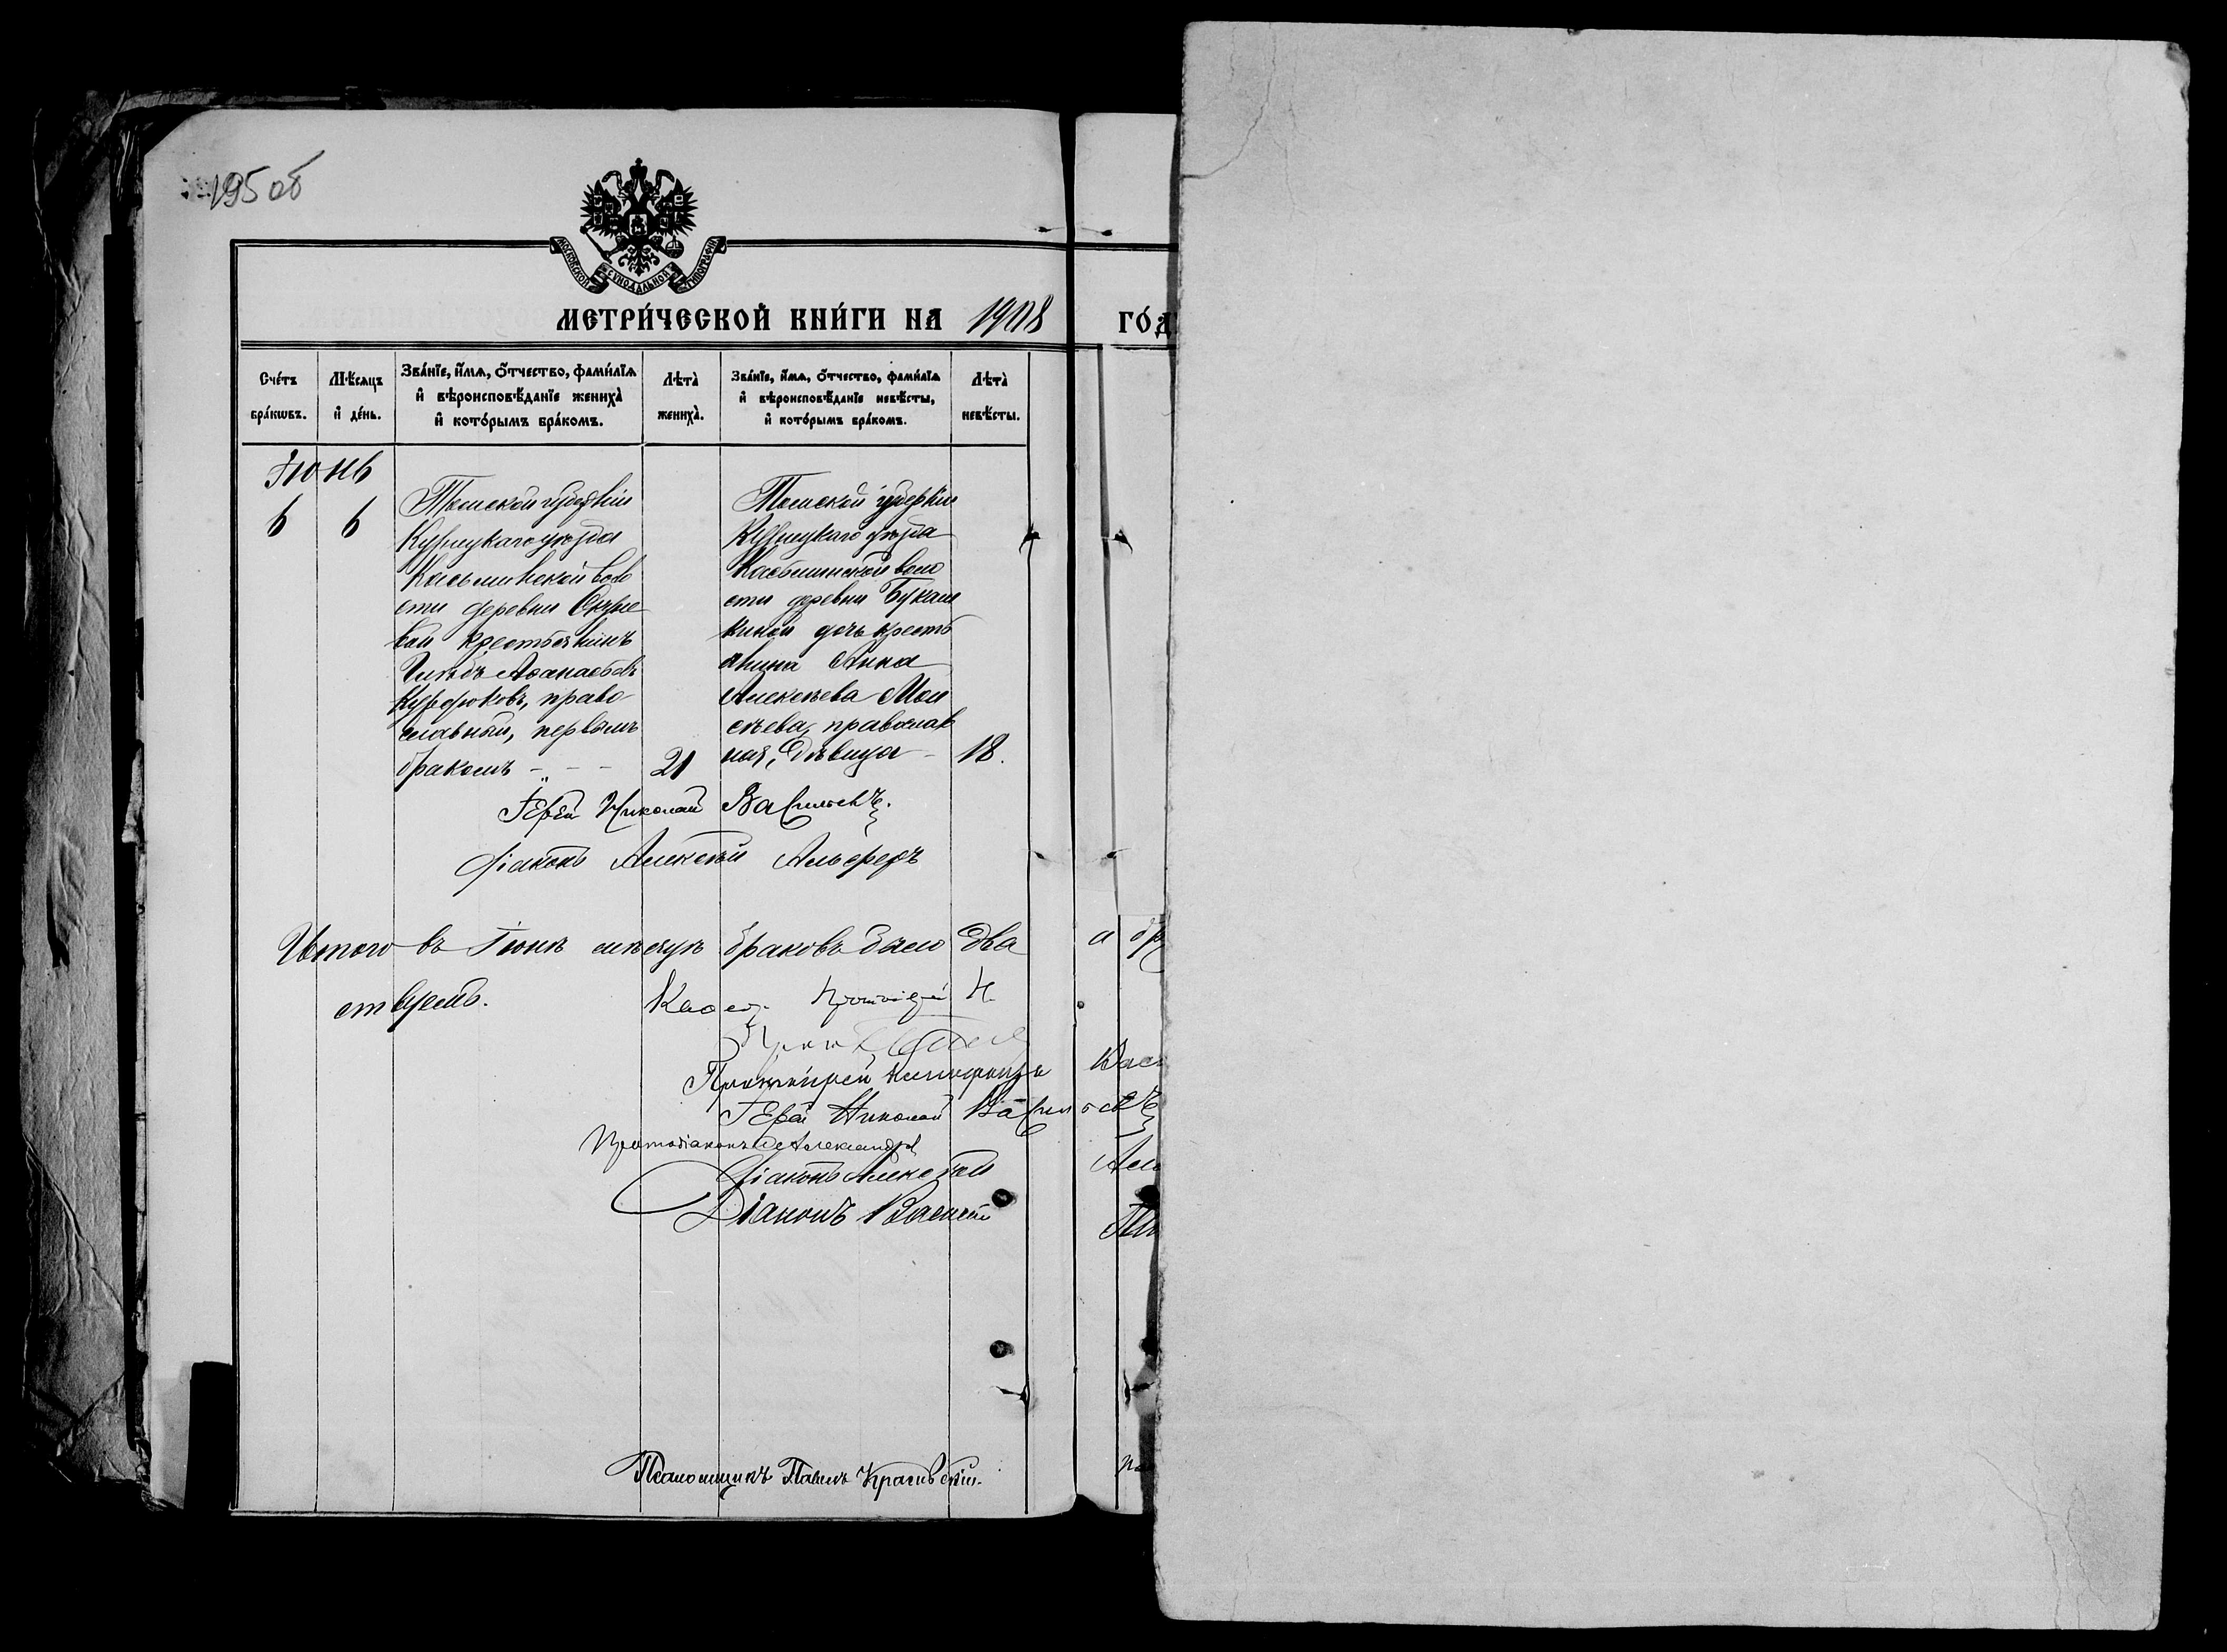 195 об
МОСКОВСКОЙ СѴНОДАЛЬНОЙ ТИПОГРАФІИ
МЕТРИ́ЧЕСКОЙ КНИ́ГИ НА 1908 ГО́Д
Сче́тъ бра́кѡвъ.
Мѣ́сяцъ и҆ де́нь.
Зва́нїе, и҆́мѧ, ѻ҆́тчество, фами́лїѧ и҆ вѣроисповѣ́данїе жениха̀ и҆ кото́рымъ бра́комъ.
Лѣта̀ жениха̀.
Зва́нїе, и҆́мѧ, ѻ҆́тчество, фами́лїѧ и҆ вѣроисповѣ́данїе невѣ́сты, и҆ кото́рымъ бра́комъ.
Лѣта̀ невѣ́сты.
Іюнь
6
6
Томской губерніи
Кузнецкаго уѣзда
Касьминской воло
сти деревни
вой крестьянинъ
Глѣбъ Аѳанасьевъ
Курдюковъ, право
славный, первымъ
бракомъ - „ - -
21
Томской губерніи
Кузнецкаго уѣзда
Касьминской воло
сти деревни Букаш
киной дочь кресть
янина Анна
Алексѣева Мои
сѣева, православ
ная, дѣвица -
18.
Іерей Николай Васильевъ.
Діаконъ Алексѣй
Итого въ Іюнѣ мѣсяцѣ браковъ было два
а бр
Каѳед. Протоіерей Н.
Протоіерей
Вас
Іерей Николай Васильевъ
Протодіаконъ Александръ
Діаконъ Алексѣй
Аль
Діаконъ Василій
Псаломщикъ Павелъ Красивскій.